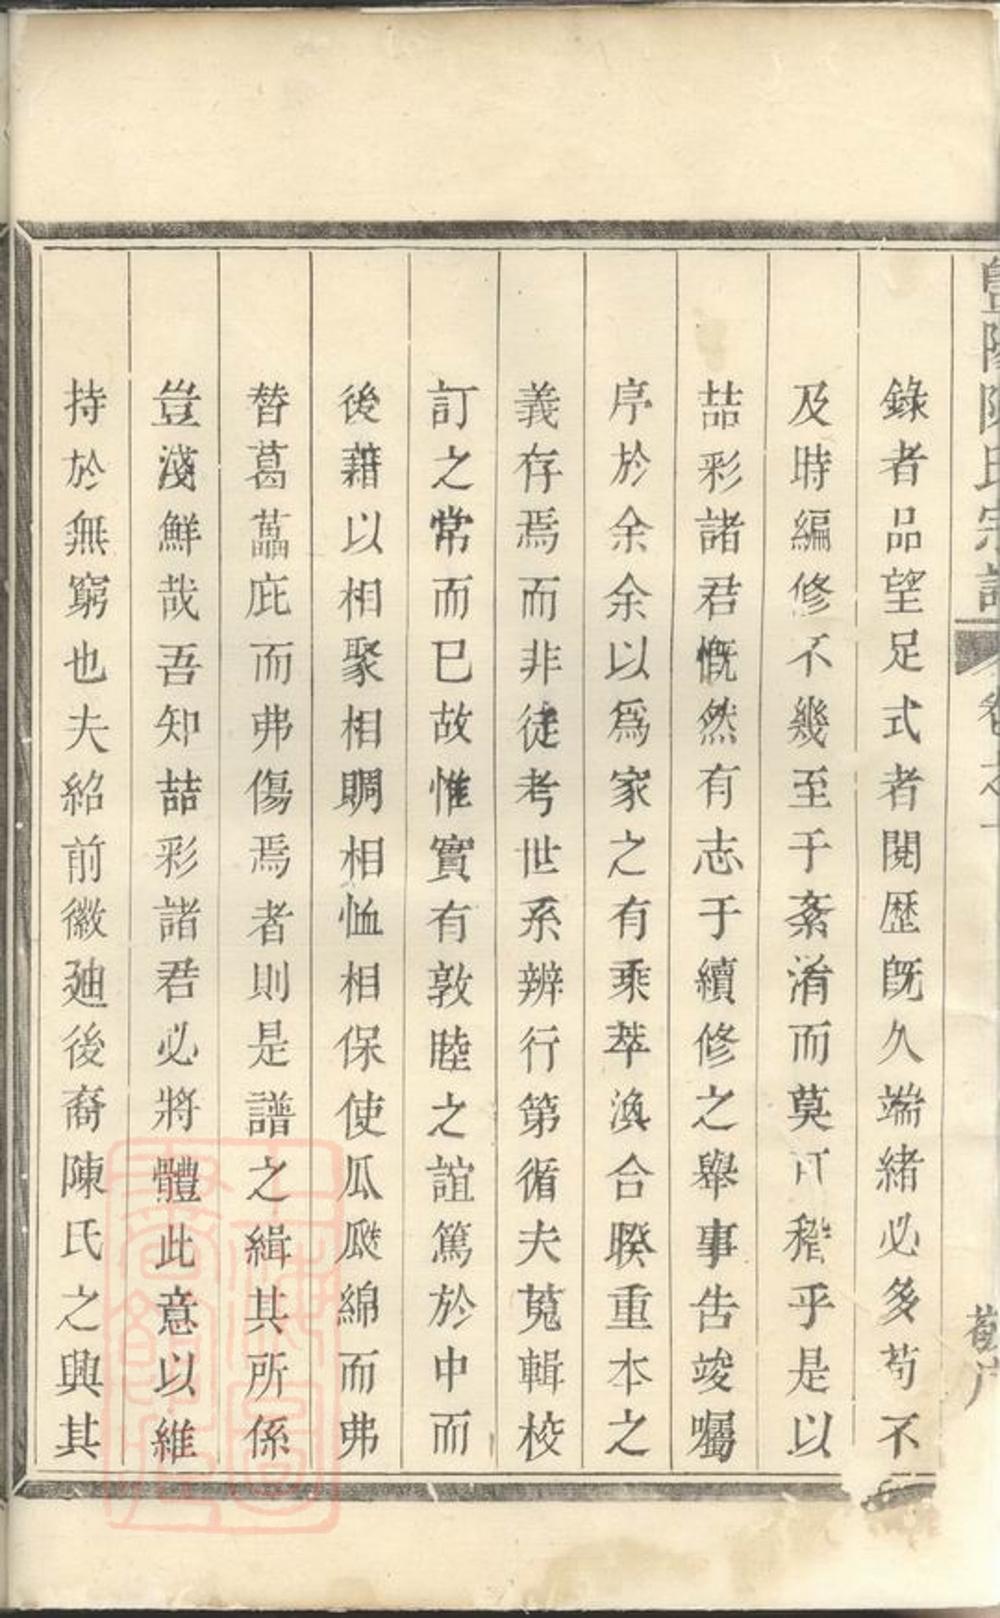 暨陽陳氏宗譜 卷之
錄者品望足式者閱歷旣久端緖必多苟不
及時編修不幾至于紊淆而莫可稽乎是以
喆彩諸君慨然有志于續修之舉事告竣囑
序於余余以爲家之有乘萃渙合睽重本之
義存焉而非徒考世系辨行第循夫蒐輯校
訂之常而已故惟實有敦睦之誼篤於中而
後藉以相聚相賙相恤相保使瓜瓞綿綿而弗
替葛藟庇而弗傷焉者則是譜之緝其所係
豈淺鮮哉吾知喆彩諸君必將體此意以維
持於無窮也夫紹前徽廸後裔陳氏之興其